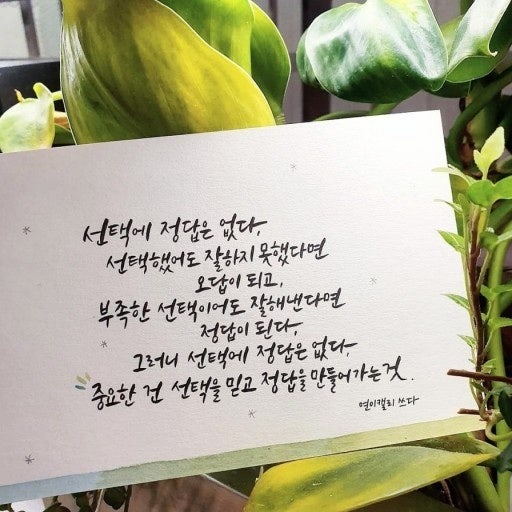 선택에 정답은 없다,
선택했어도 잘하지 못했다면
오답이 되고,
부족한 선택이어도 잘해낸다면
정답이 된다,
그러니 선택에 정답은 없다,
중요한 건 선택을 믿고 정답을 만들어가는 것.
연이캘리 쓰다